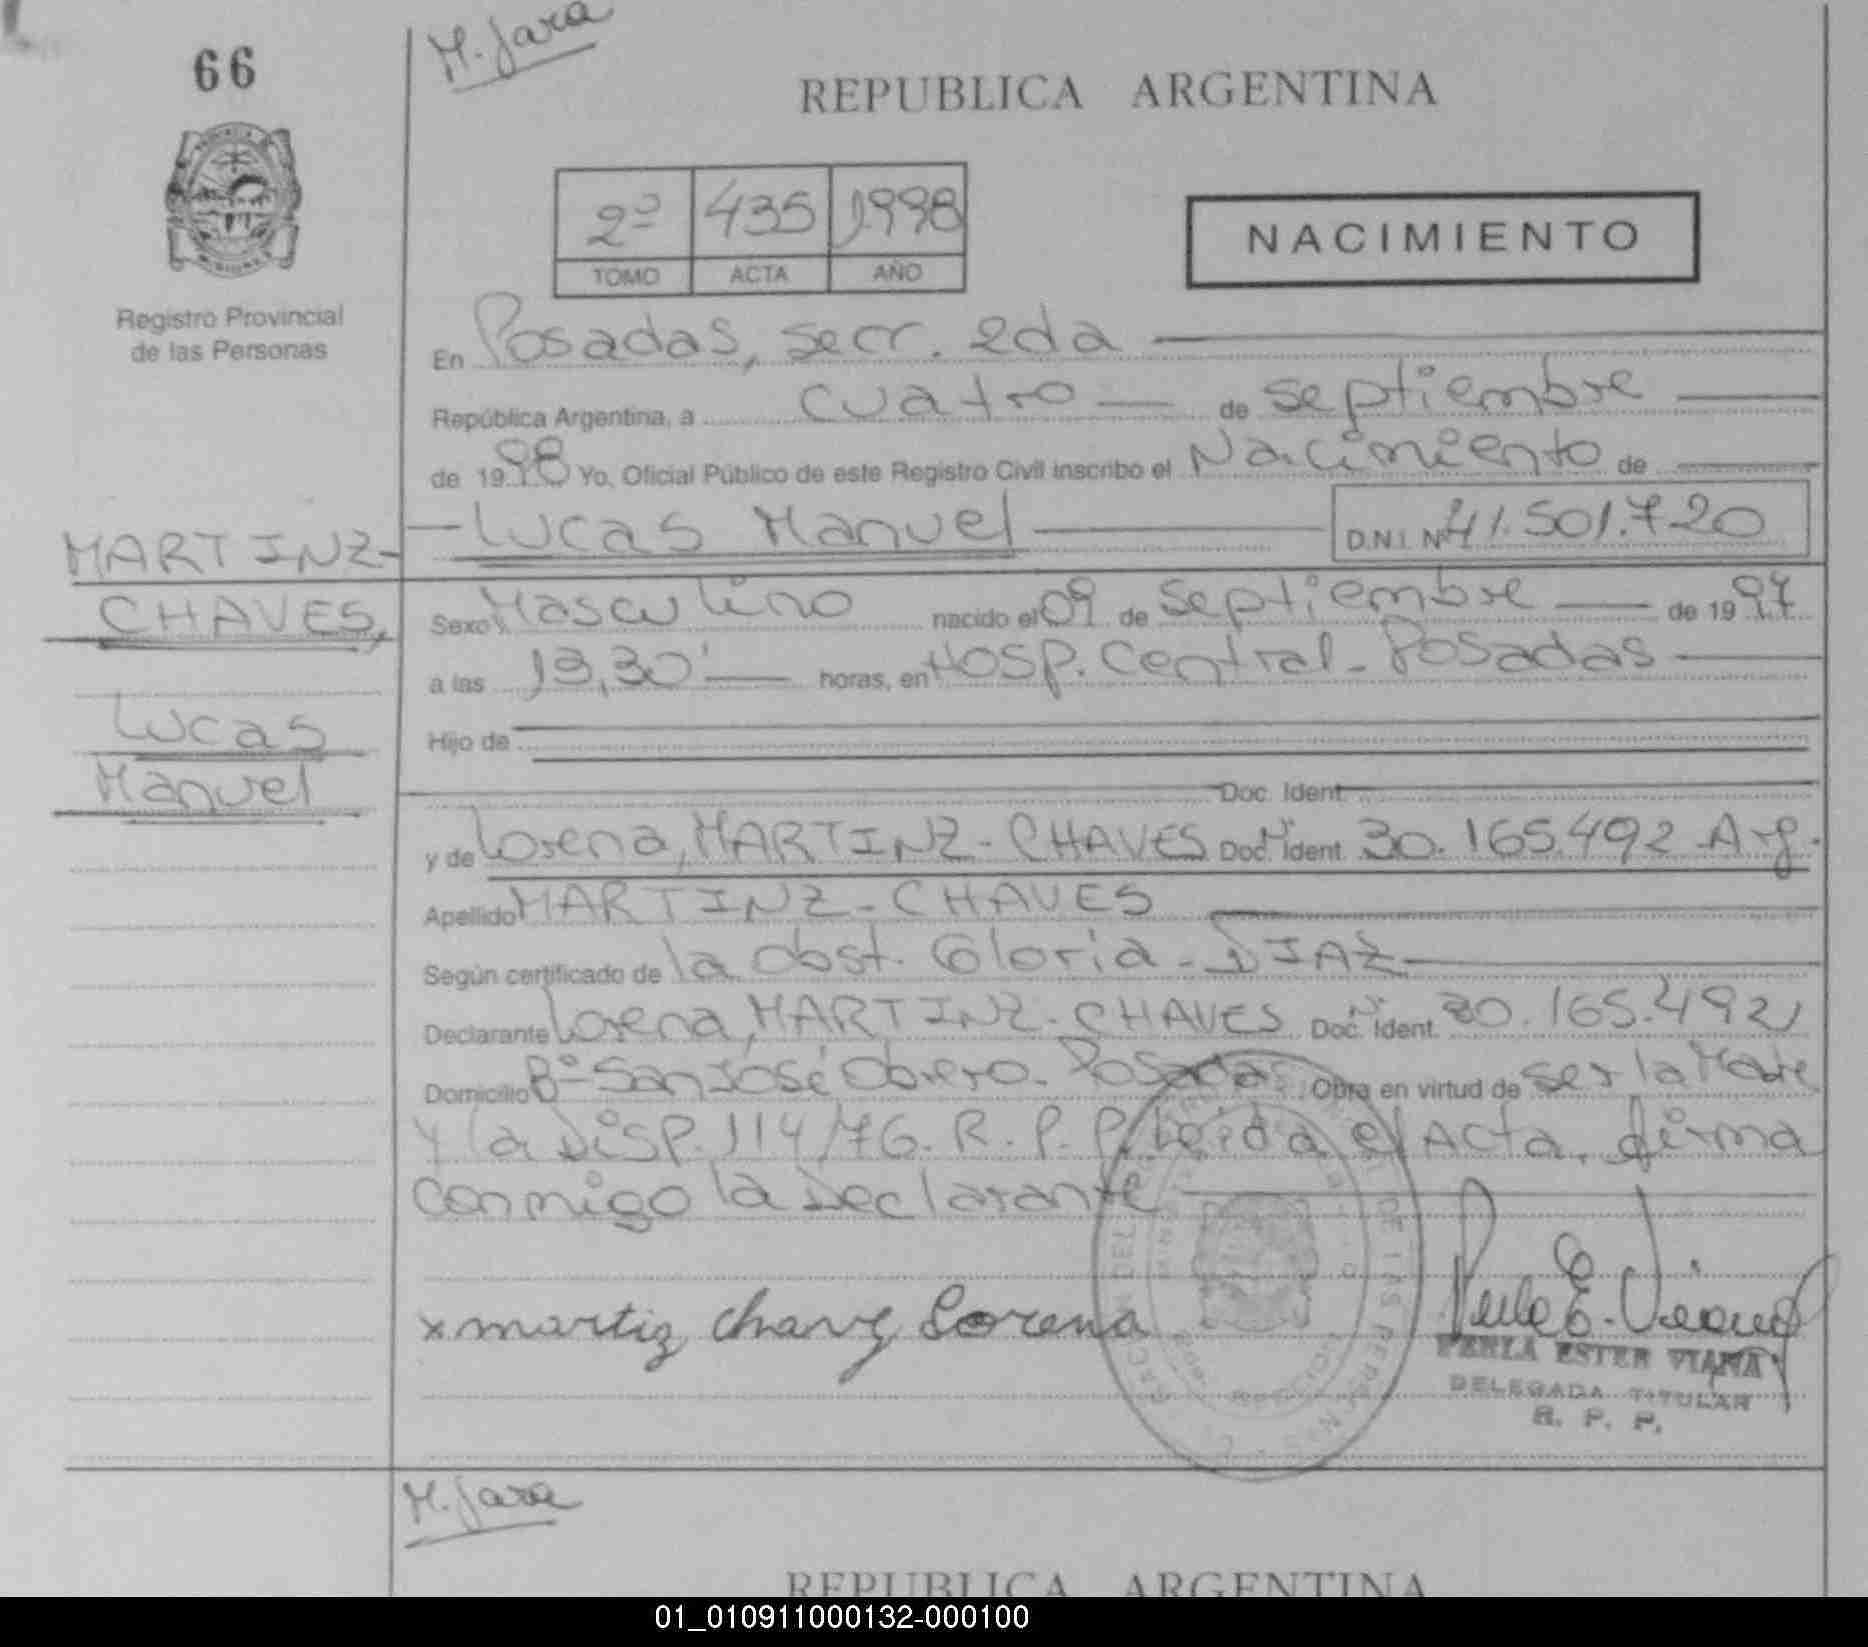 66
M. Jara
REPUBLICA ARGENTINA
2º 435 1998
TOMO ACTA AÑO
NACIMIENTO
Registro Provincial
de las Personas
En Posadas, secr. 2da
República Argentina, a cuatro de septiembre
de 1998 Yo, Oficial Público de este Registro Civil inscribo el Nacimiento de
Lucas Manuel D.N.I. Nº 41.501.720
MARTINZ-
CHAVES,
Lucas
Manuel
Sexo Masculino nacido el 09 de septiembre de 1997
a las 13,30' horas, en Hosp. Central - Posadas
Hijo de
Doc. Ident.
y de Lorena, MARTINZ - CHAVES Doc. Ident. Nº 30.165.492 Arg.
Apellido MARTINZ - CHAVES
Según certificado de la obst. Gloria - DIAZ
Declarante Lorena, MARTINZ - CHAVES Doc. Ident. Nº 30.165.492
Domicilio Bº San José Obrero - Posadas Obra en virtud de ser la Madre
y la Disp. 114/76. R. P. P. Leida el Acta, firma
conmigo la Declarante
x martiz chavz Lorena
PERLA ESTER VIANA
DELEGADA TITULAR
R. P. P.
M. Jara
REPUBLICA ARGENTINA
01_010911000132-000100